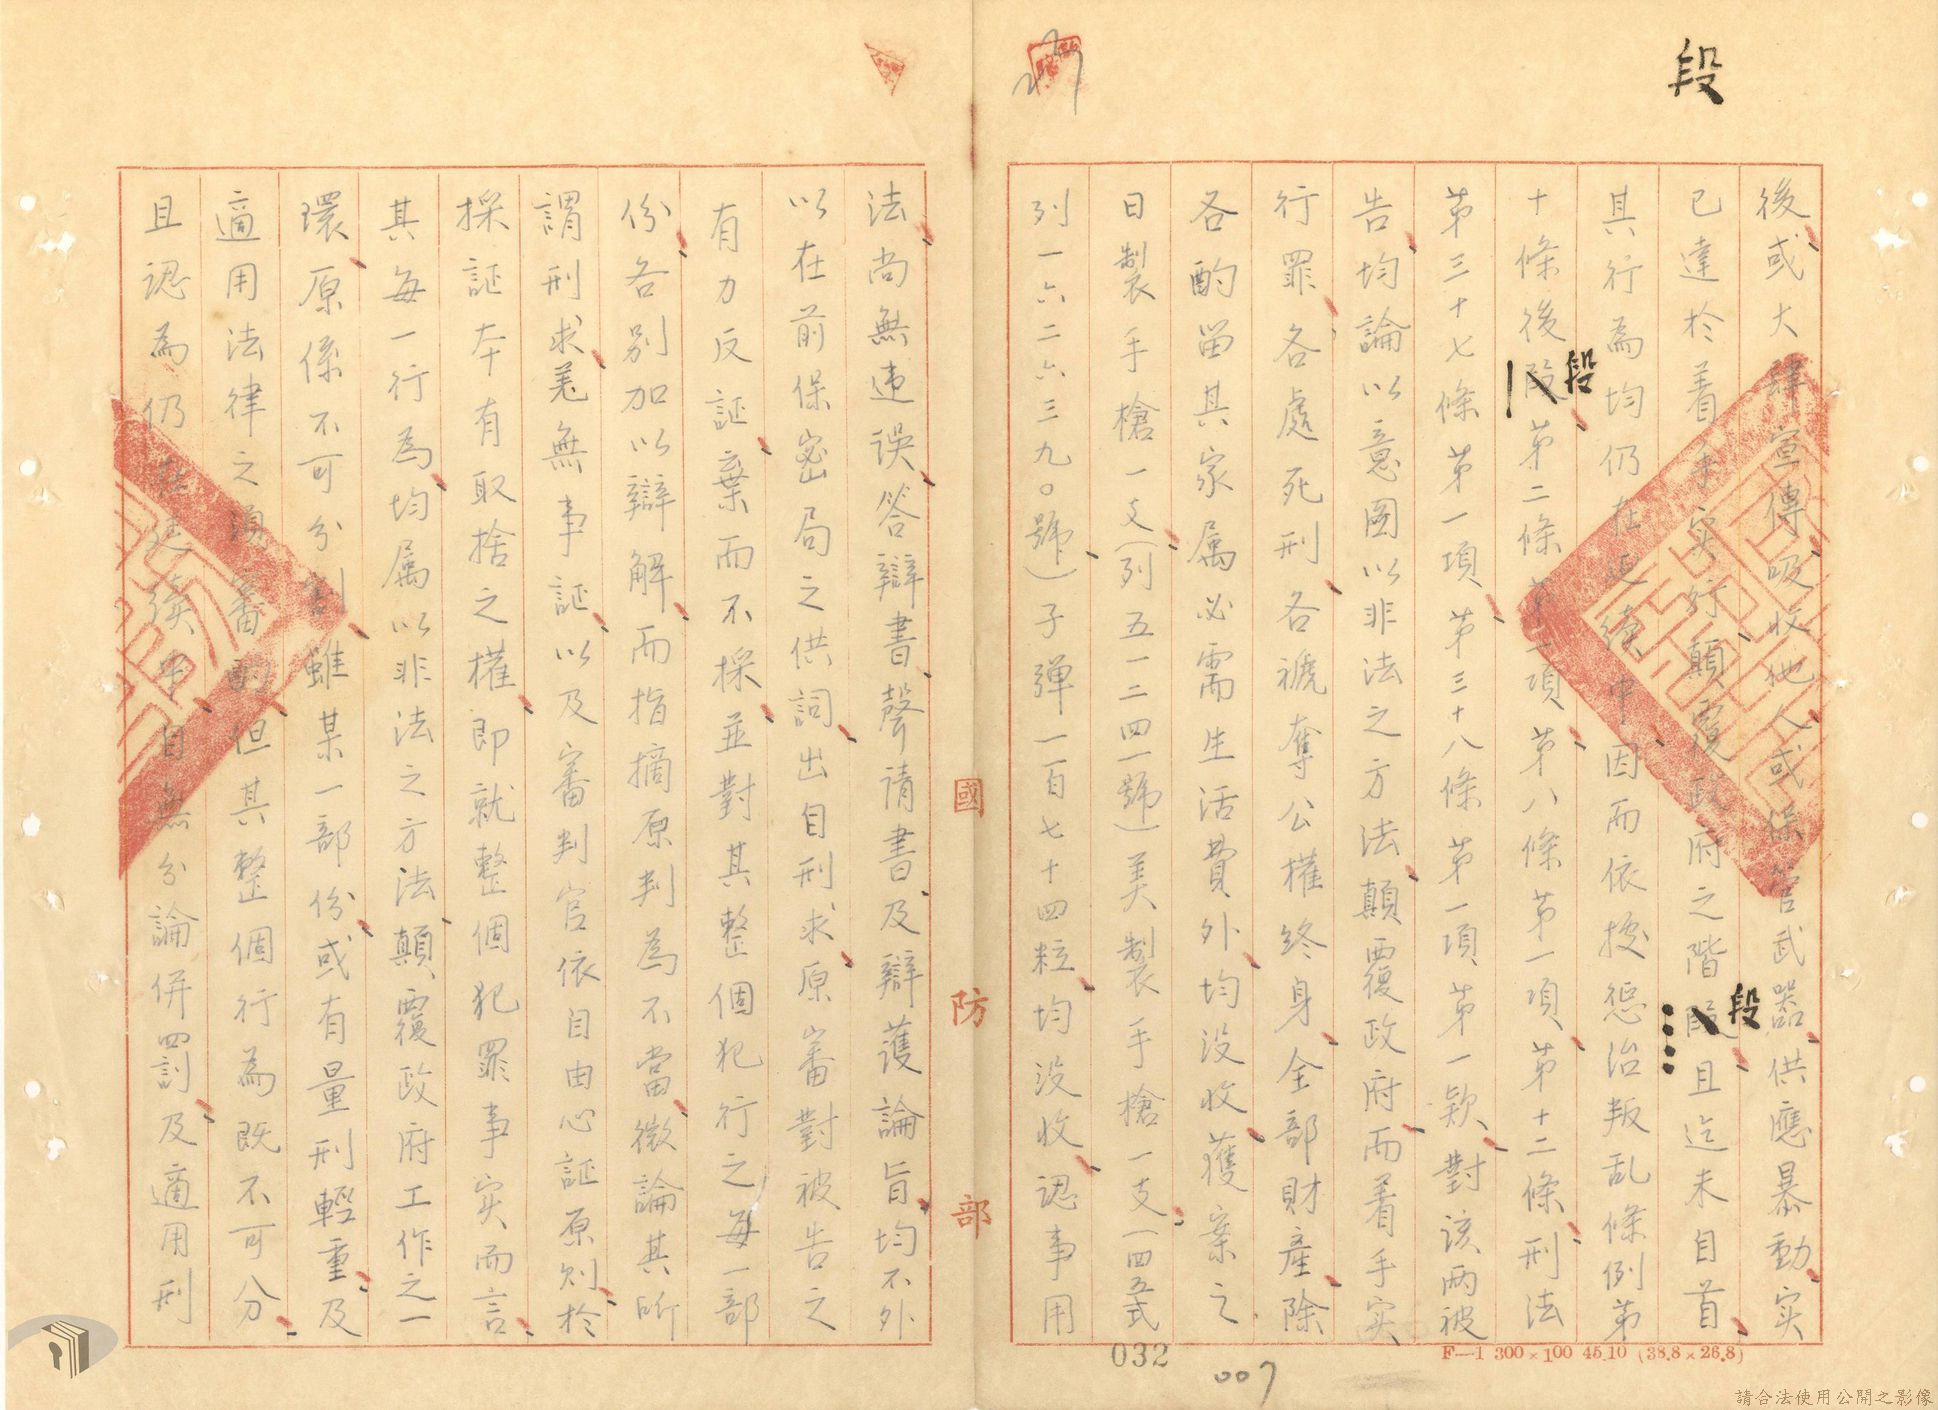 段
後或大肆宣傳吸收他人或保管武器供應暴動实
已達於着手实行顛覆政府之階段且迄未自首
段
其行為均仍在延續中因而依按懲治叛乱條例第
十條後段第二條第一項第八條第一項第十二條刑法
段
第三十七條第一項第三十八條第一項第一款對該两被
告均論以意圖以非法之方法顛覆政府而着手实
行罪各處死刑各褫奪公權終身全部財產除
各酌留其家属必需生活費外均没收獲案之
日製手槍一支(列五一二四一號)美製手槍一支(四五式
列一六二六三九0號)子弹一百七十四粒均没收認事用
國防部
法尚無违误答辯書聲请書及辯護論旨均不外
以在前保密局之供詞出自刑求原審對被告之
有力反証棄而不採並對其整個犯行之每一部
份各别加以辯解而指摘原判為不當微論其所
謂刑求羌無事証以及審判官依自由心証原则於
採証本有取捨之權即就整個犯罪事实而言
其每一行為均属以非法之方法顛覆政府工作之一
環原係不可分割雖某一部份或有量刑輕重及
適用法律之須審酌但其整個行為既不可分
且認為仍在延續中自無分論併罰及適用刑
032
007
F—1 300×100 45.10 (38.8×26.8)
請合法使用公開之影像